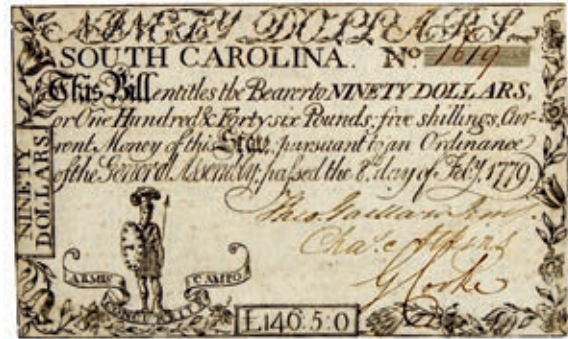 NINETY DOLLARS
SOUTH CAROLINA. No 1619
This Bill entitles the Bearer to NINETY DOLLARS,
or One Hundred & Forty six Pounds, five shillings, Cur-
rent Money of this State, pursuant to an Ordinance
of the General Assembly, passed the 8th day of Feby. 1779
NINETY
DOLLARS
Chas. Atkins
G Cooke
ARMIS
CAMPO
£146:5:0